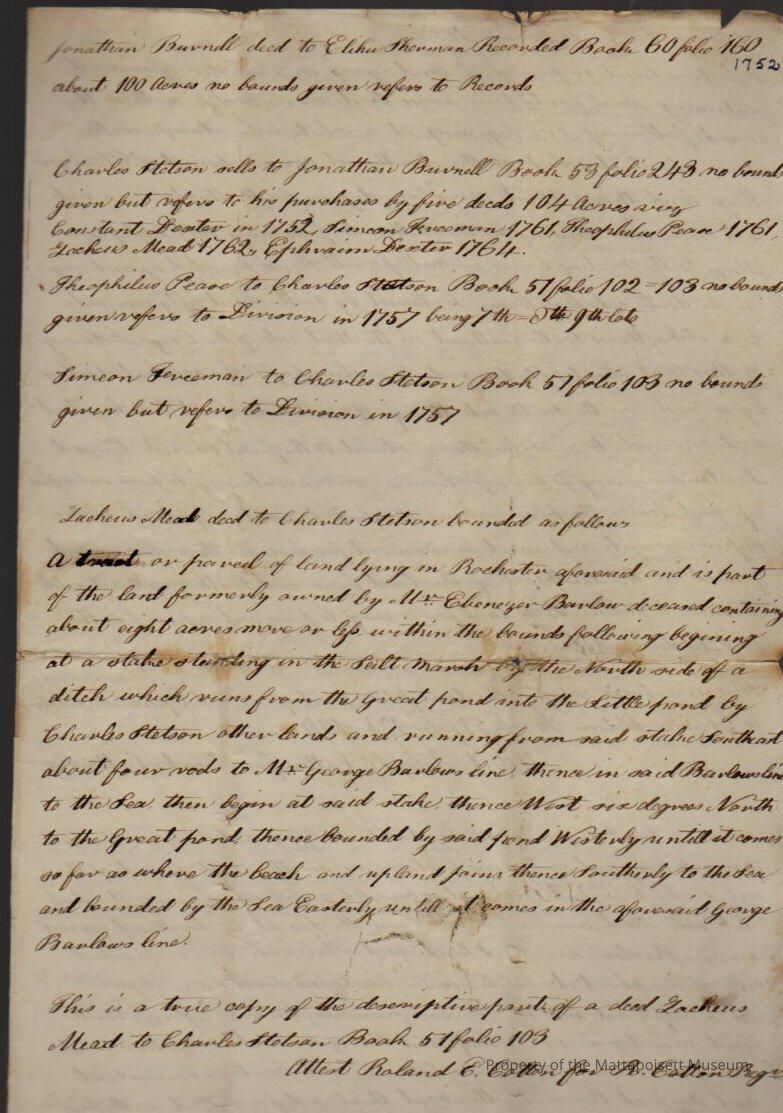 Jonathan Burnell deed to Elihu Sherman Recorded Book 60 folio 160
1752
about 100 Acres no bounds given refers to Records
Charles Stetson sells to Jonathan Burnell Book 53 folio 243 no bounds
given but refers to his purchases by five deeds 104 Acres viz
Constant Dexter in 1752, Simeon Freeman 1761, Theophilus Pease 1761,
Zacheus Mead 1762, Ephraim Dexter 1764.
Theophilus Pease to Charles Stetson Book 51 folio 102=103 no bounds
given refers to Division in 1757 being 7th=8th 9th lots
Simeon Freeman to Charles Stetson Book 51 folio 103 no bounds
given but refers to Division in 1757
Zacheus Mead deed to Charles Stetson bounded as follows
A tract or parcel of land lying in Rochester aforesaid and is part
of the land formerly owned by Mr. Ebenezer Barlow deceased containing
about eight acres more or less within the bounds following begining
at a stake standing in the Salt marsh by the North side of a
ditch which runs from the Great pond into the Little pond by
Charles Stetson other lands and running from said stake Southeast
about four rods to Mr George Barlows line, thence in said Barlows line
to the Sea, then begin at said stake, thence West six degrees North
to the Great pond, thence bounded by said pond Westerly untill it comes
so far as where the beach and upland joins thence Southerly to the Sea
and bounded by the Sea Easterly untill it comes in the aforesaid George
Barlows line.
This is a true copy of the descriptive part of a deed Zacheus
Mead to Charles Stetson Book 51 folio 103
Attest Roland E. Cotton for R. Cotton Regr
Property of the Mattapoisett Museum